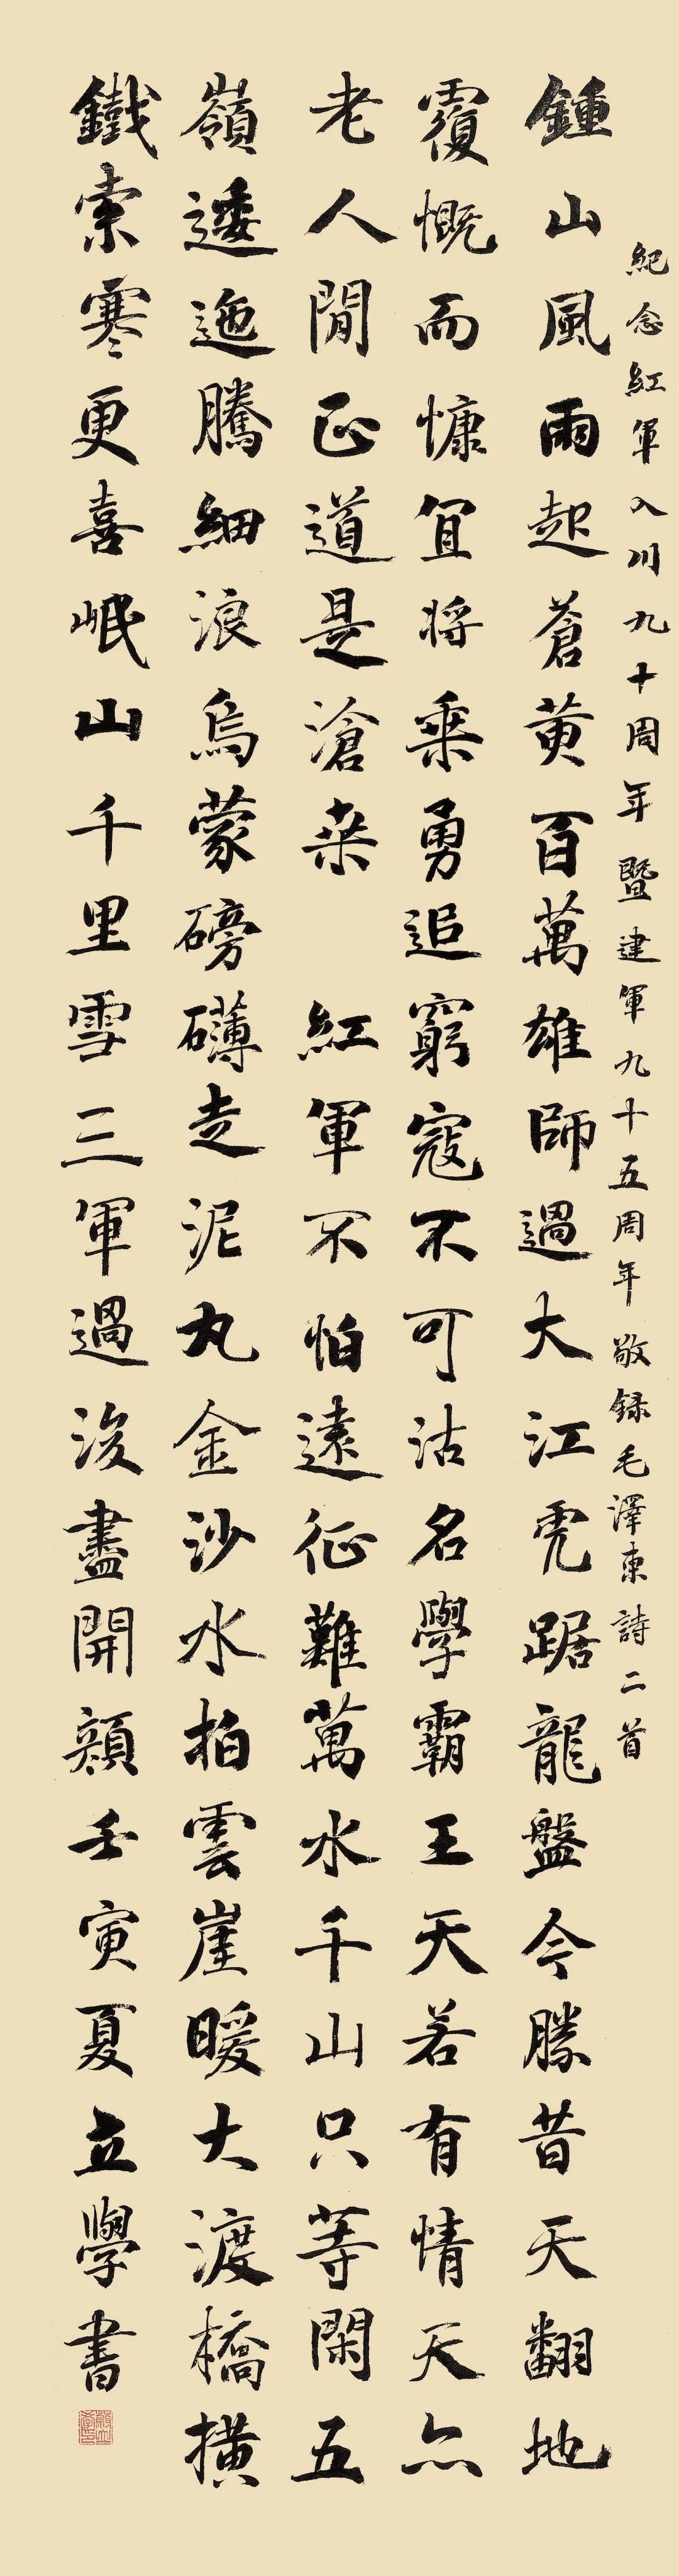 紀念紅軍入川九十周年暨建軍九十五周年敬録毛澤東詩二首
鍾山風雨起蒼黄百萬雄師過大江虎踞龍盤今勝昔天翻地
覆慨而慷宜將乘勇追窮寇不可沽名學霸王天若有情天亦
老人閒正道是滄桒 紅軍不怕遠征難萬水千山只等閑五
嶺逶迤騰細浪烏蒙磅礴走泥丸金沙水拍雲崖暖大渡橋横
鐵索寒更喜岷山千里雪三軍過後盡開顏壬寅夏立學書